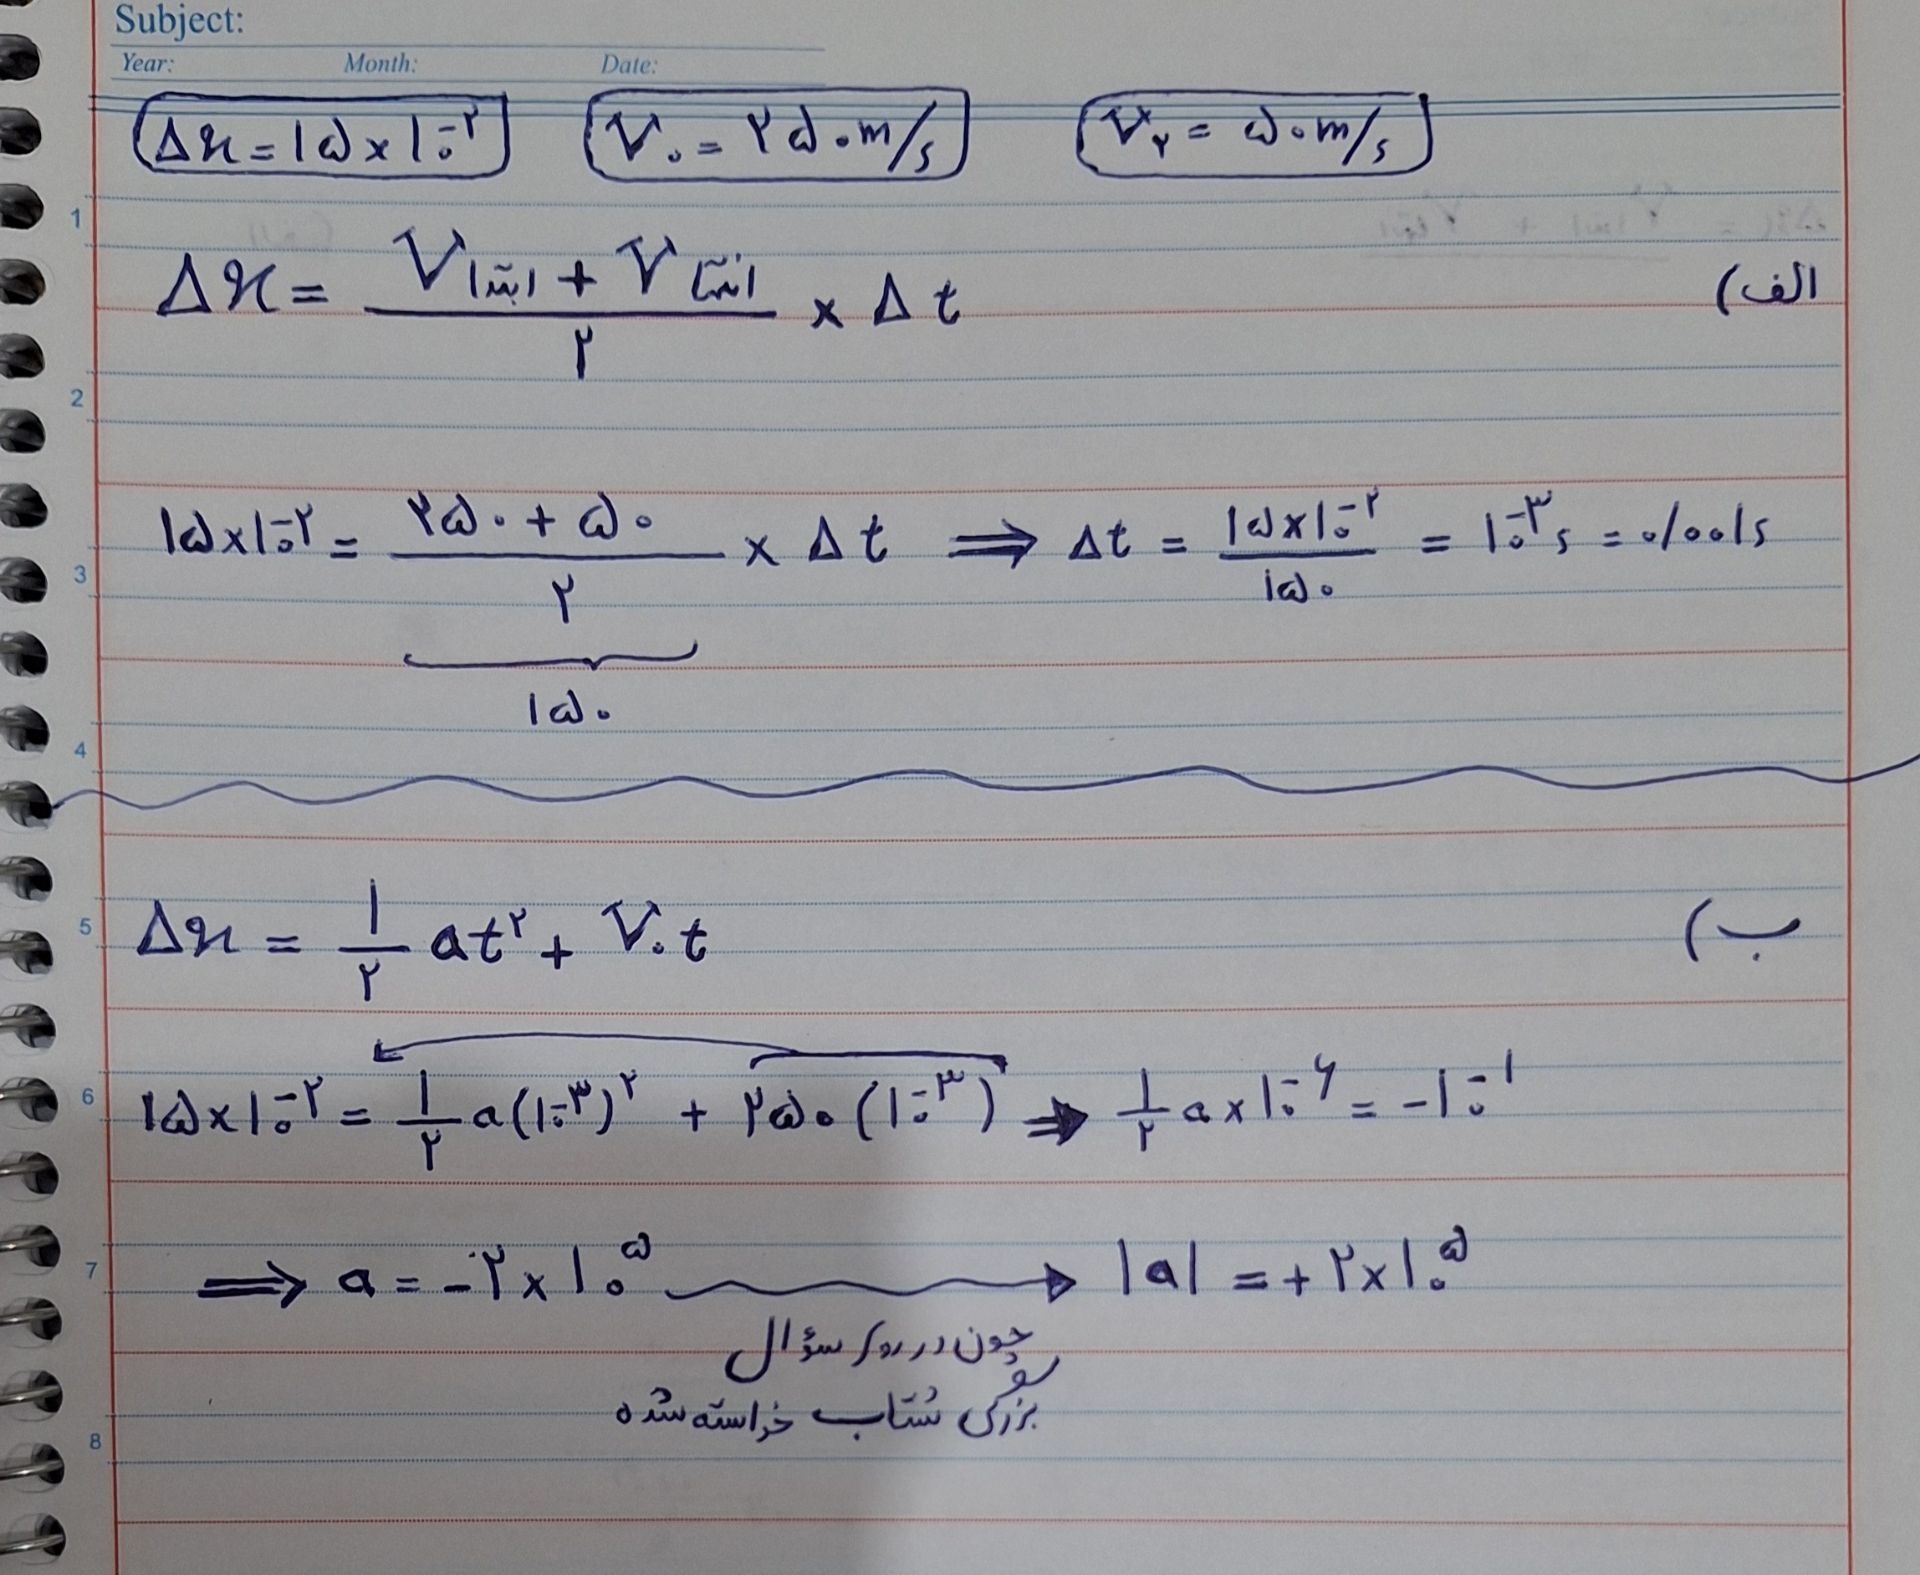 Subject:
Year: Month: Date:
Δx = ۱۵ × ۱۰⁻² V₀ = ۲۵۰ m/s V₂ = ۵۰ m/s
الف)
Δx = (V ابتدا + V انتها) / ۲ × Δt
۱۵ × ۱۰⁻² = (۲۵۰ + ۵۰) / ۲ × Δt ⟹ Δt = (۱۵ × ۱۰⁻²) / ۱۵۰ = ۱۰⁻³ s = ۰/۰۰۱ s
۱۵۰
ب)
Δx = ۱/۲ at² + V₀t
۱۵ × ۱۰⁻² = ۱/۲ a(۱۰⁻³)² + ۲۵۰(۱۰⁻³) ⟹ ۱/۲ a × ۱۰⁻⁶ = -۱۰⁻¹
⟹ a = -۲ × ۱۰⁵ → |a| = +۲ × ۱۰⁵
چون در روی سؤال
بزرگی شتاب خواسته شده
1
2
3
4
5
6
7
8